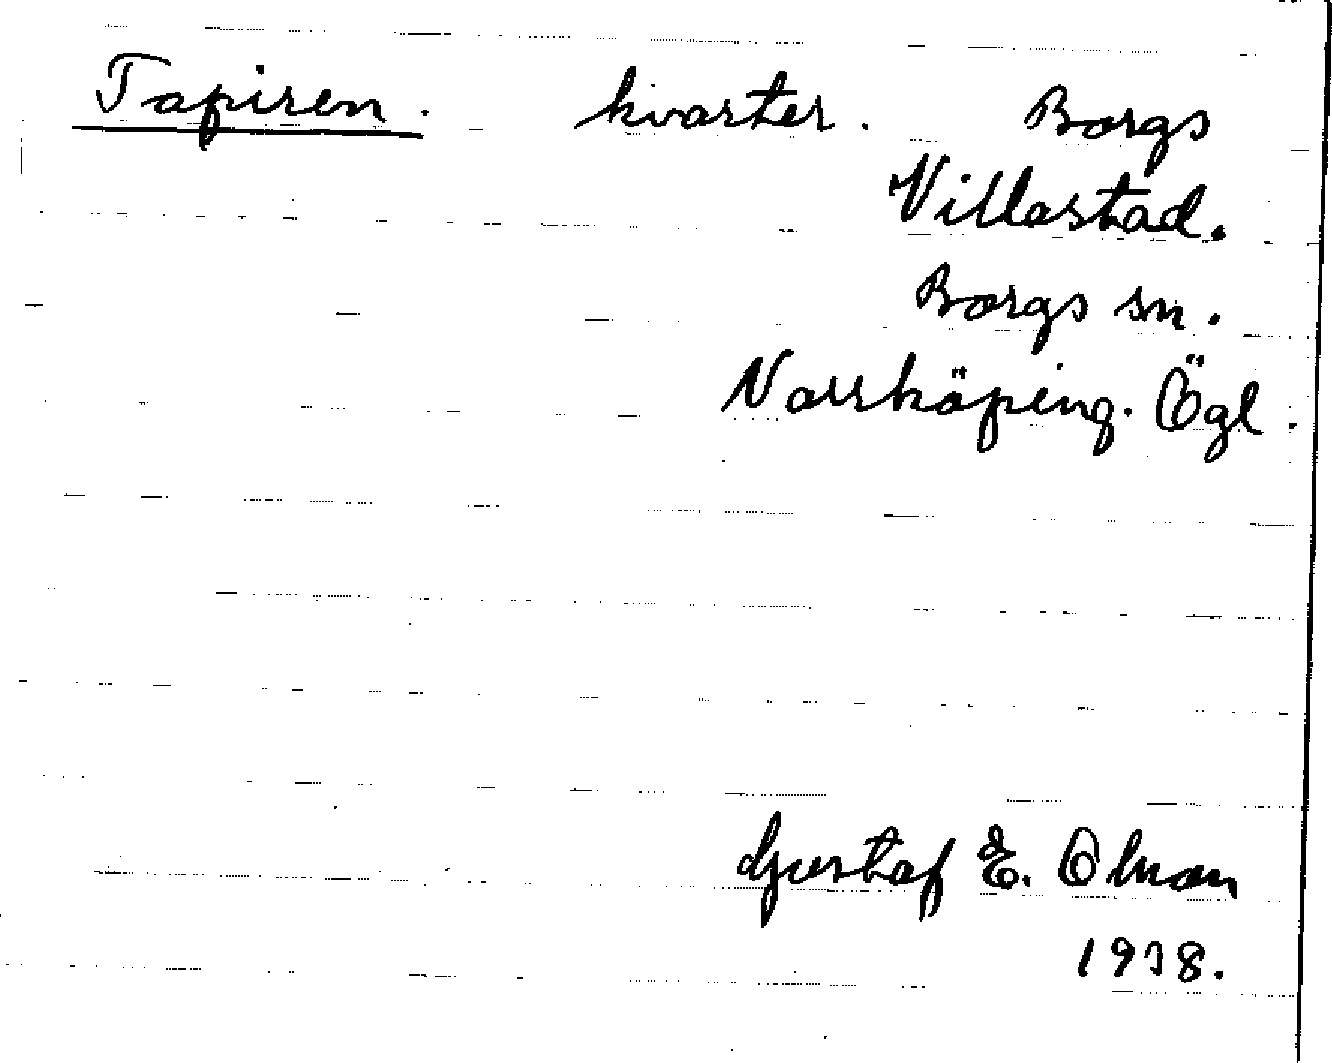 Tapiren. kvarter. Borgs
Villastad.
Borgs sn.
Norrköping. Ögl.
Gustaf E. Ohman
1938.